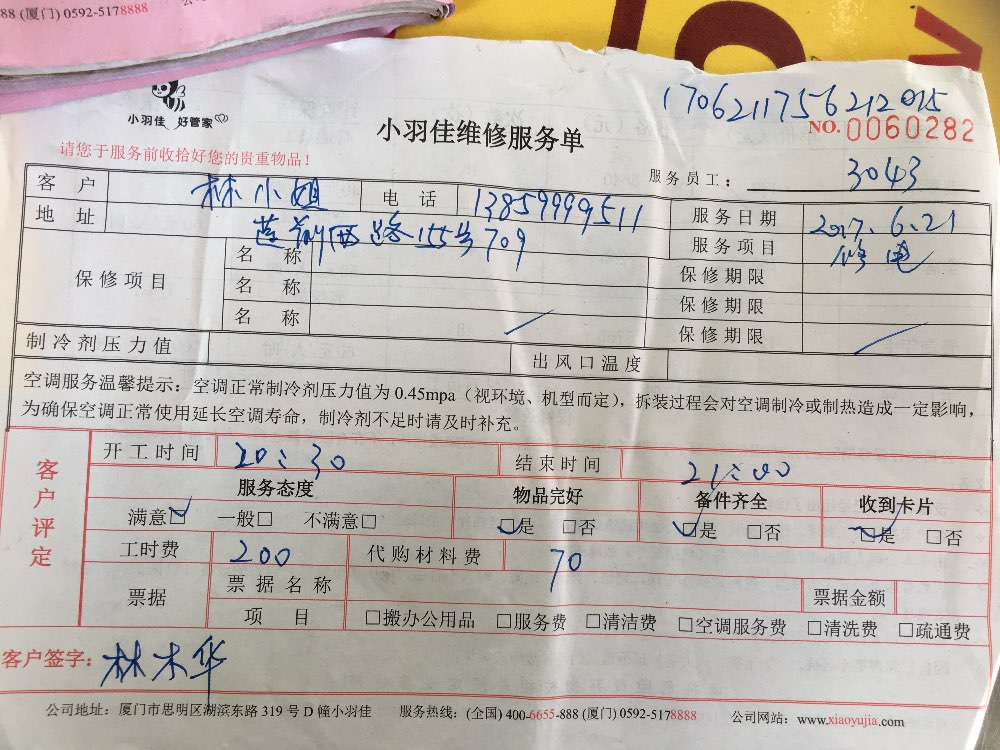 88 (厦门) 0592-5178888
小羽佳 好管家
小羽佳维修服务单
1706211756212015
NO.0060282
请您于服务前收拾好您的贵重物品！
服务员工： 3043
客 户 林小姐 电 话 13859999511 服务日期 2017.6.21
地 址 莲前西路155号709 服务项目 修电
保修项目 名 称 保修期限
名 称 保修期限
名 称 保修期限
制冷剂压力值 出风口温度
空调服务温馨提示：空调正常制冷剂压力值为 0.45mpa（视环境、机型而定），拆装过程会对空调制冷或制热造成一定影响，
为确保空调正常使用延长空调寿命，制冷剂不足时请及时补充。
客户评定
开工时间 20：30 结束时间 21：00
服务态度 物品完好 备件齐全 收到卡片
满意☑ 一般□ 不满意□ ☑是 □否 ☑是 □否 ☑是 □否
工时费 200 代购材料费 70
票据 票据名称 票据金额
项 目 □搬办公用品 □服务费 □清洁费 □空调服务费 □清洗费 □疏通费
客户签字：林木华
公司地址：厦门市思明区湖滨东路 319 号 D 幢小羽佳 服务热线：(全国) 400-6655-888 (厦门) 0592-5178888 公司网站：www.xiaoyujia.com